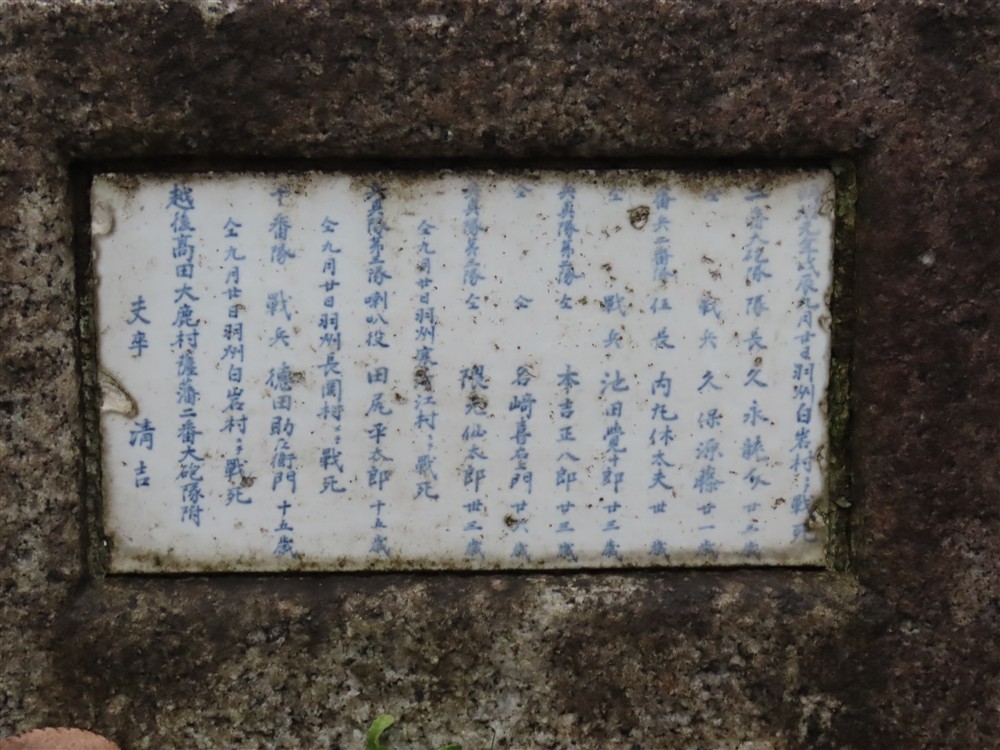 元年戊辰九月廿日羽州白岩村ニ戰死
二番大砲隊 隊長 久永 廿五歳
仝 戰兵 久保源藤 廿一歳
番兵二番隊 伍長 内丸休太夫 廿 歳
仝 戰兵 池田覺 郎 廿三歳
兵具隊第二隊 仝 本吉正八郎 廿三歳
仝 仝 谷崎喜 門 廿六歳
兵具隊第三隊 仝 隈元仙太郎 廿三歳
仝九月廿日羽州寒 江村ニ戰死
兵具隊第 隊喇叭役 田尻平太郎 十五歳
仝九月廿日羽州長岡村ニ戰死
十番隊 戰兵 德田助左衛門 十五歳
仝九月廿日羽州白岩村ニ戰死
越後高田大鹿村薩藩二番大砲隊附
夫卒 清吉